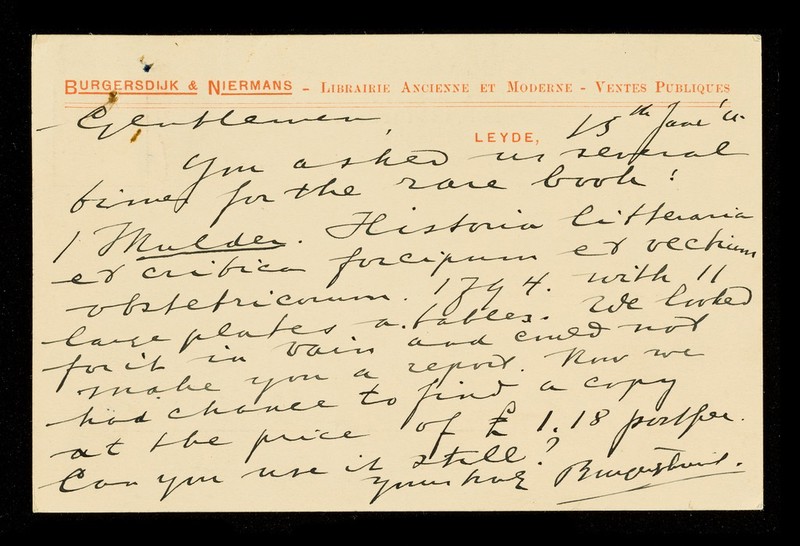 BURGERSDIJK & NIERMANS - LIBRAIRIE ANCIENNE ET MODERNE - VENTES PUBLIQUES
Gentlemen,
LEYDE, 15th
You asked us several
times for the rare book:
1 Mulder. Historia litteraria
et critica forcipum et vectium
obstetricorum. 1794. with 11
large plates a. tables. We looked
for it in vain and could not
make you a report. Now we
had chance to find a copy
at the price of £ 1.18 postfee.
Can you use it still?
yours truly